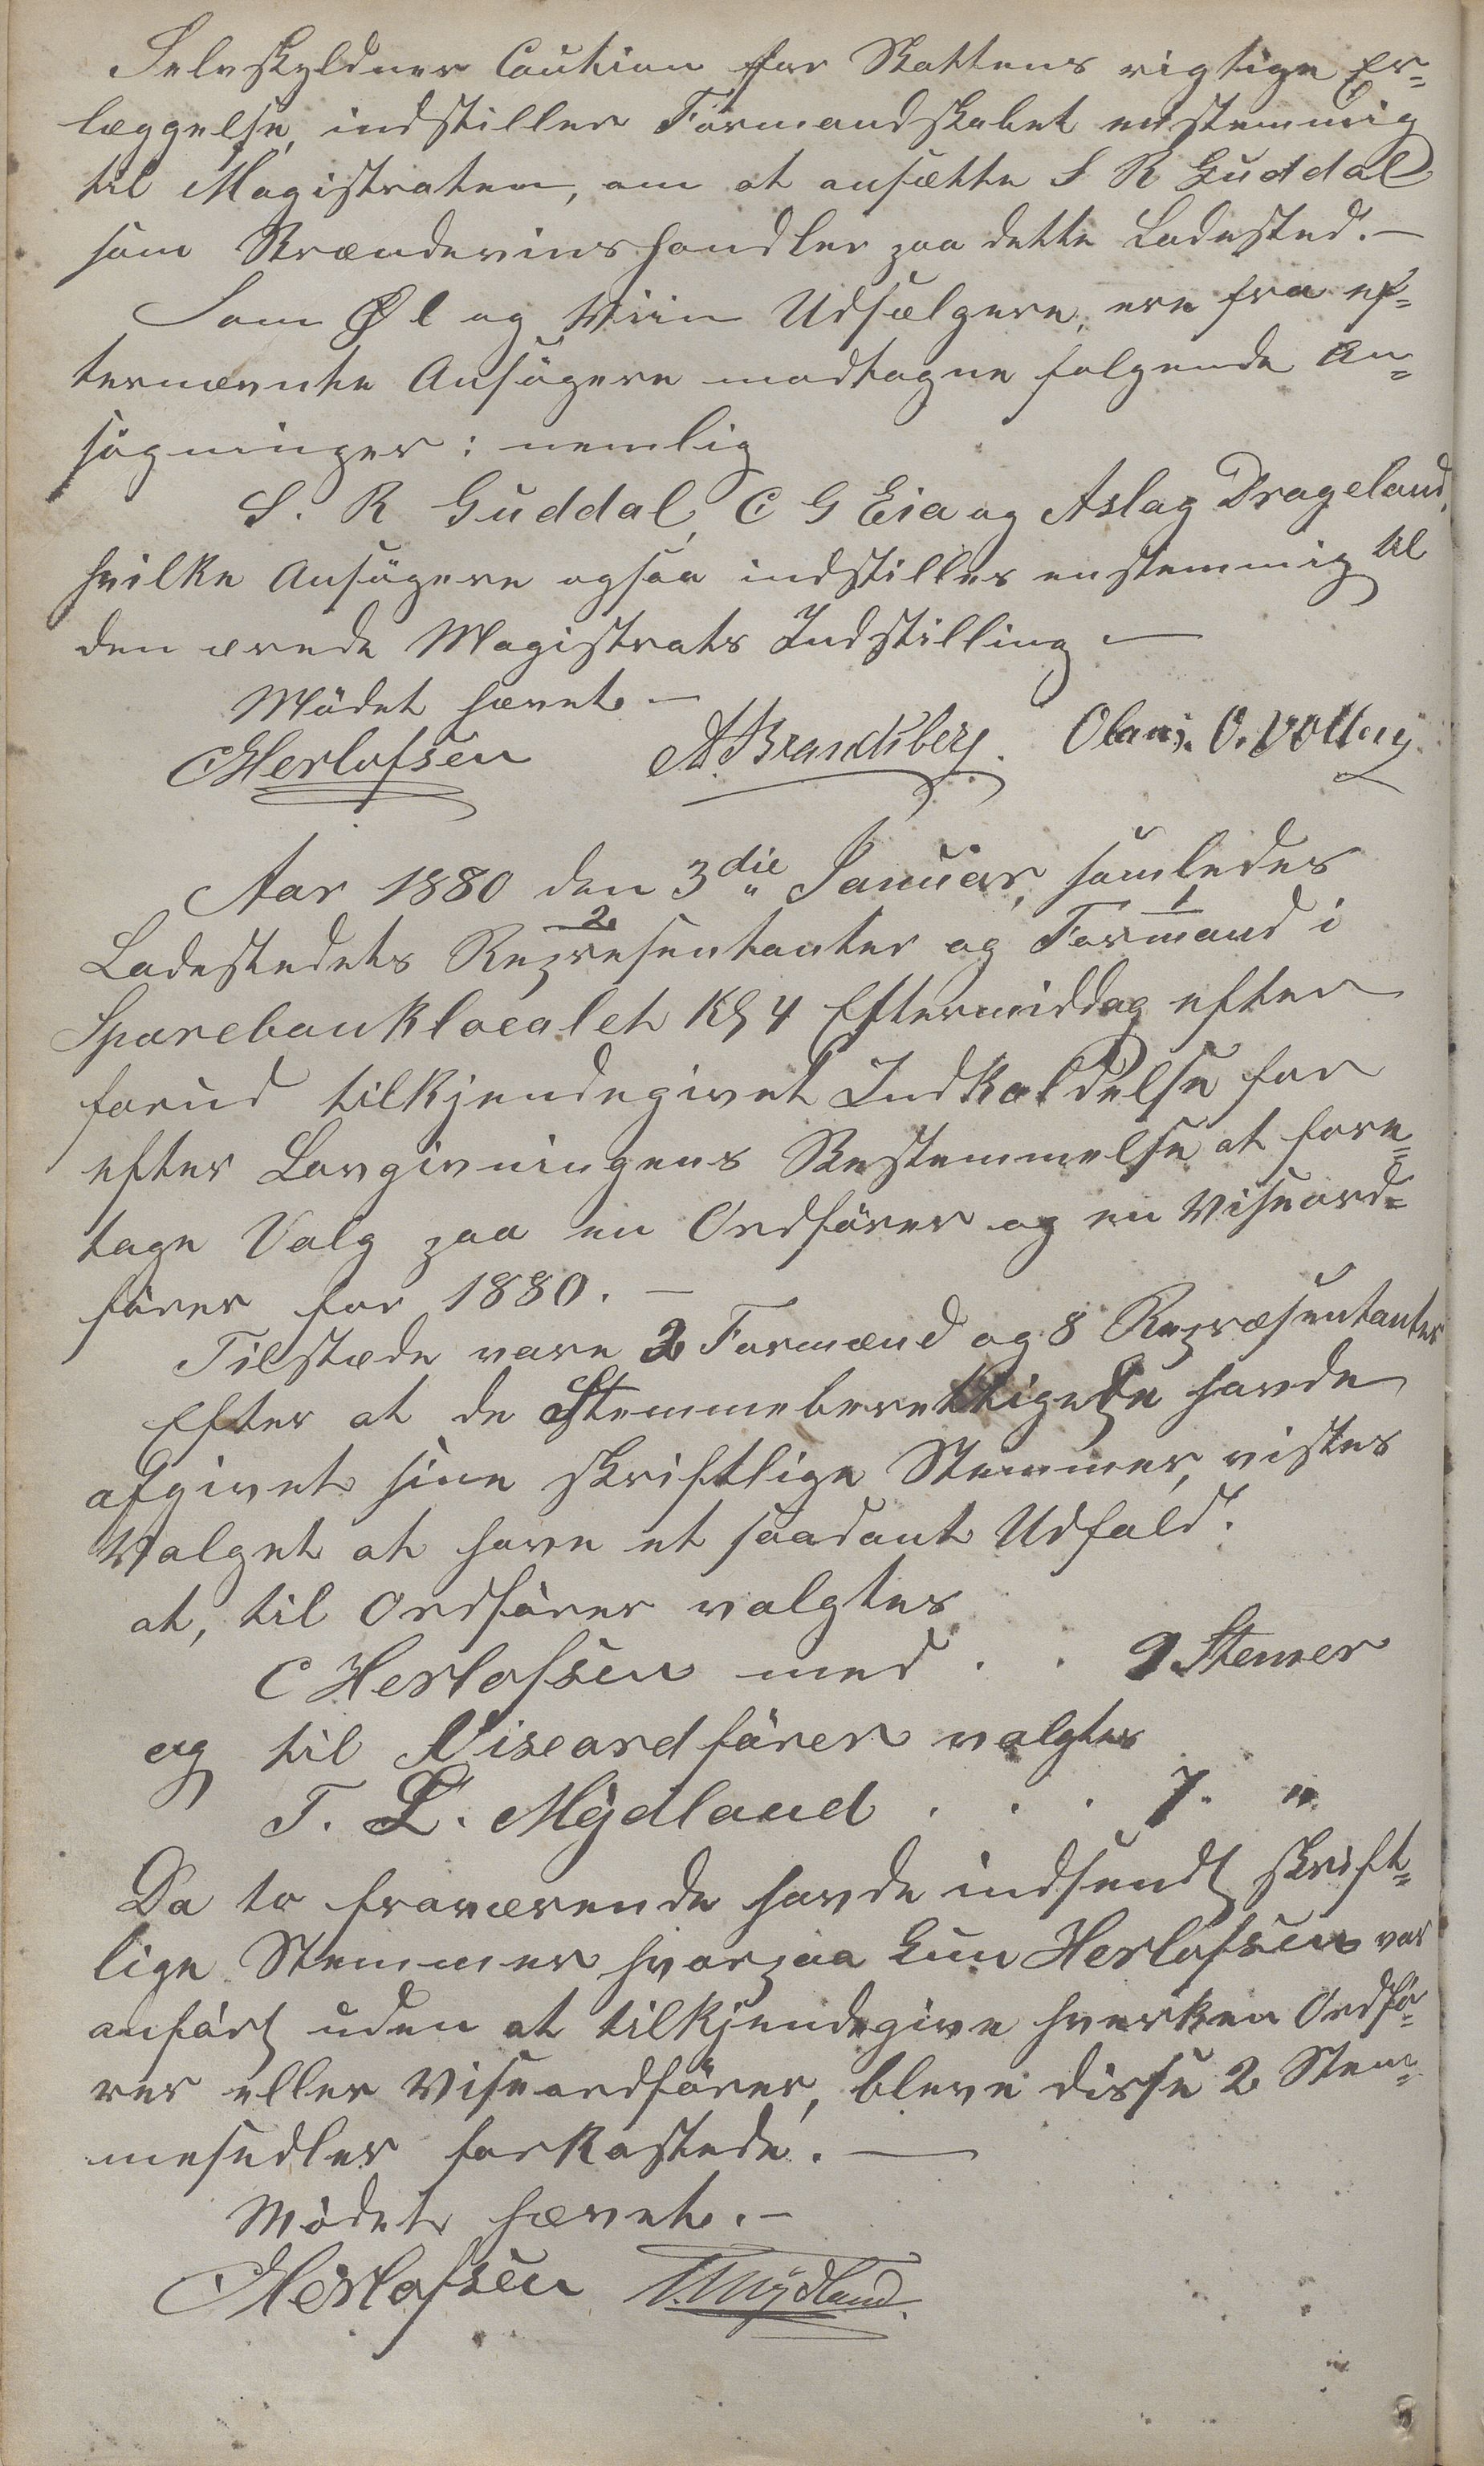 Selvskyldner Caution for Skattens rigtige Er-
læggelse, indstiller Formandskabet enstemmig
til Magistraten, om at ansætte S R Guddal
som Brændevinshandler paa dette Ladested. –
Som Øl og Viin Udsælgere, ere fra ef-
ternævnte Ansøgere modtagne følgende An-
søgninger: nemlig
S. R Guddal, C G Eia og Aslag Drageland,
hvilke Ansøgere ogsaa indstilles enstemmig til
den ærede Magistrats Indstilling –
Mødet hævet –
CHerlofsen A. Brandsberg. Olaus. O.
Aar 1880 den 3die Januar, samledes
Ladestedets 2 Representanter og 1 Formænd i
Sparebanklocalet Kl 4 Eftermiddag efter
forud tilkjendegivet Indkaldelse for
efter Lovgivningens Bestemmelse at fore-
tage Valg paa en Ordfører og en Viseord-
fører for 1880. –
Tilstæde vare 2 Formænd og 8 Repræsentanter
Efter at de Stemmeberettigede havde
afgivet sine skriftlige Stemmer, vistes
Valget at have et saadant Udfald.
at, til Ordfører valgtes
C Herlofsen med . . 9 Stemer
og til Viseordfører valgtes
T. L. Mydland . . . 7. "
Da to fraværende havde indsendt skrift-
lige Stemmer hvorpaa kun Herlofsen var
anført uden at tilkjendegive hverken Ordfø-
rer eller Viseordfører, bleve disse 2 Stem-
mesedler forkastede. –
Mødet hævet. –
CHerlofsen T. Mydland.